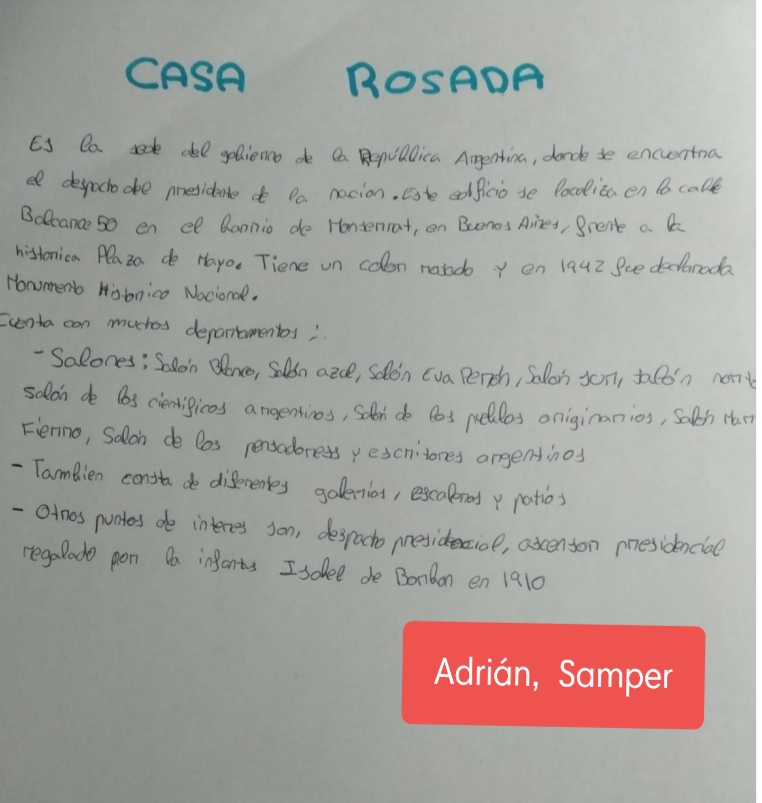 CASA ROSADA
Es la sede del gobierno de la República Argentina, donde se encuentra
el despacho del presidente de la nacion. Este edificio se localiza en la calle
Balcarce 50 en el barrio de Monserrat, en Buenos Aires, frente a la
historica Plaza de Mayo. Tiene un color rosado y en 1942 fue declarada
Monumento Historico Nacional.
Cuenta con muchos departamentos:
- Salones: Salón Blanco, Salón azul, Salón Eva Perón, Salón sur, salón norte
salón de los cientificos argentinos, Salón de los pueblos originarios, Salón Mar
Fierro, Salón de los pensadores y escritores argentinos
- Tambien consta de diferentes galerias, escaleras y patios
- Otros puntos de interes son, despacho presidencial, ascensor presidencial
regalado por la infanta Isabel de Borbon en 1910
Adrián, Samper